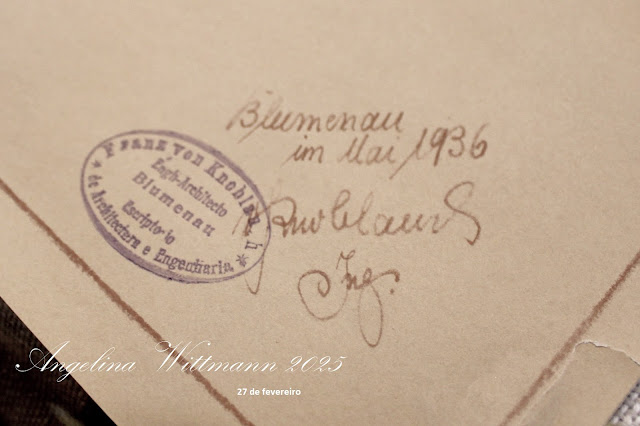 Blumenau
im Mai 1936
Franz von Knoblauch
Engº-Architecto
Blumenau
Escriptorio
de Architectura e Engenharia
Knoblauch
Ing.
Angelina Wittmann 2025
27 de fevereiro